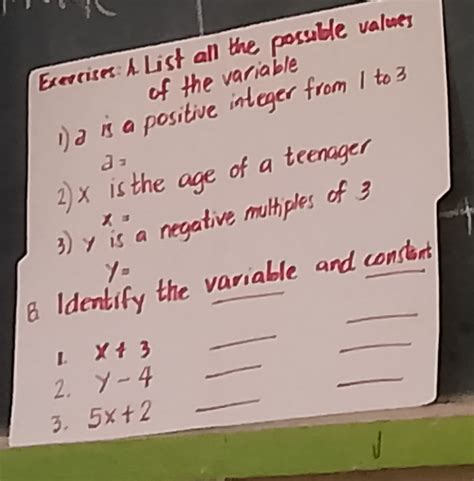 Exercises: A. List all the possible values
of the variable
1) a is a positive integer from 1 to 3
a=
2) x is the age of a teenager
x=
3) y is a negative multiples of 3
y=
B. Identify the variable and constant
1. x+3
2. y-4
3. 5x+2